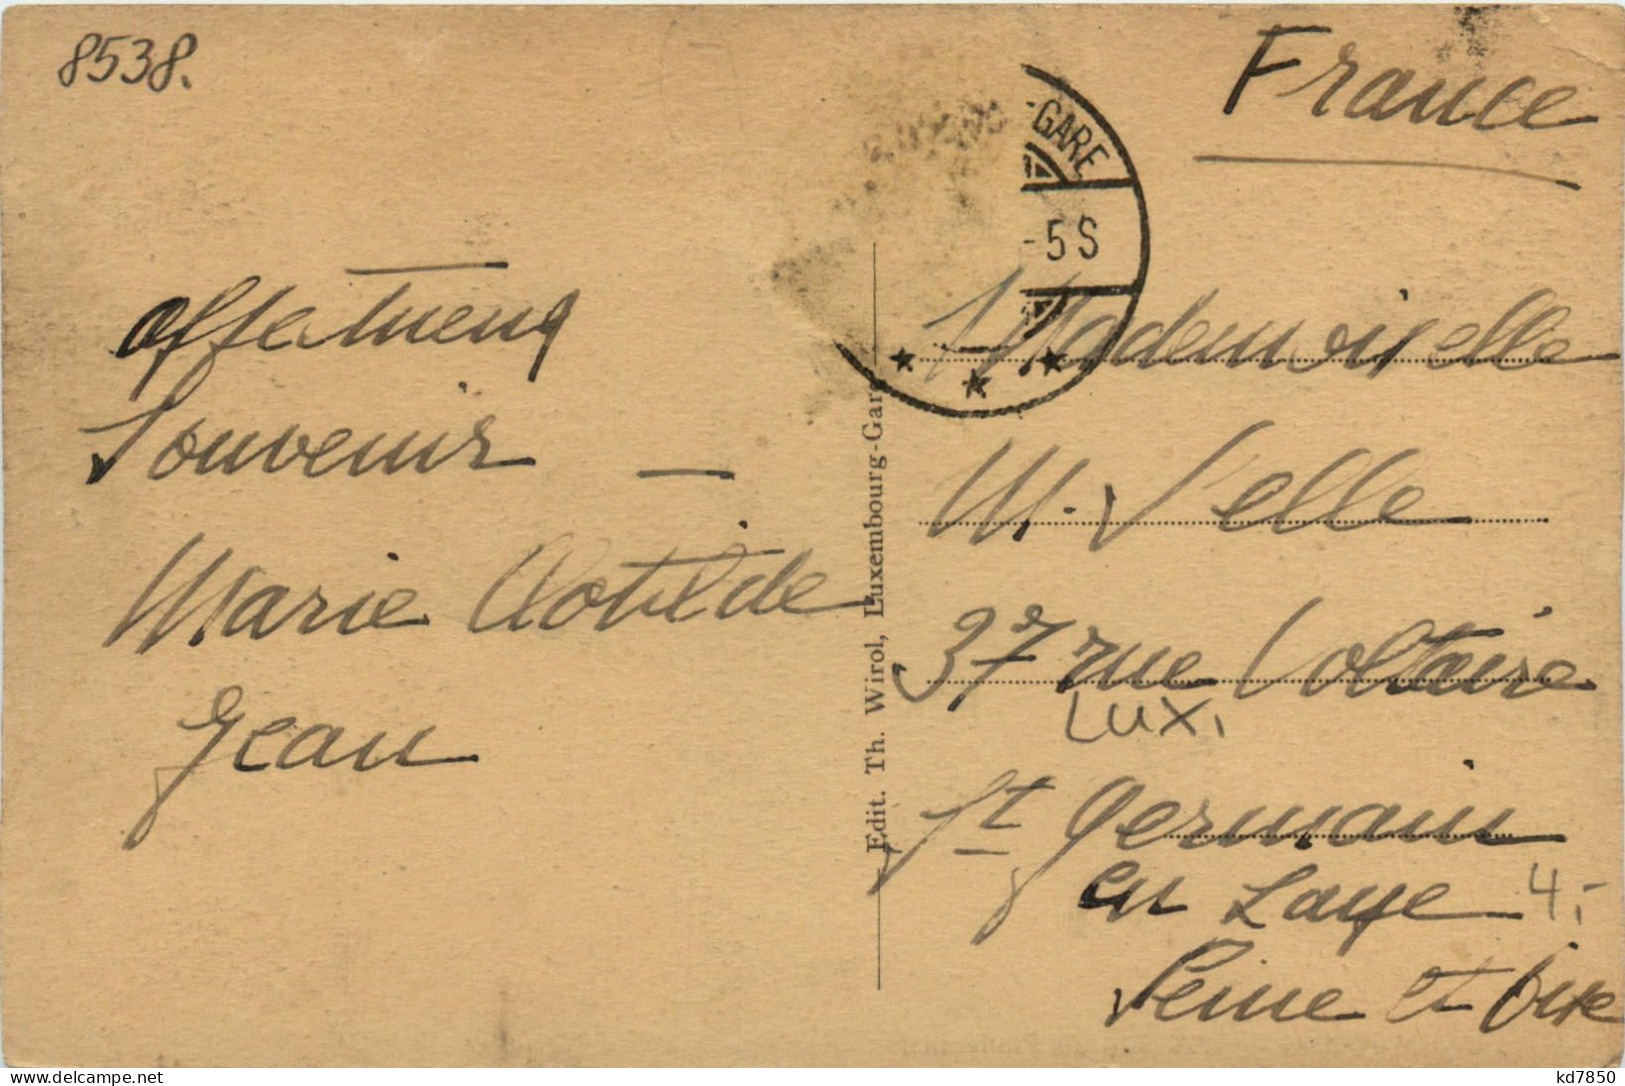 8538.
France
-GARE
-5S
affectueux
Souvenir —
Marie Clotilde
Jean
Edit. Th. Wirol, Luxembourg-Gare
Mademoiselle
M. Velle
37 rue Voltaire
LUX,
St Germain
en Laye
4,-
Seine et Oise
kd7850